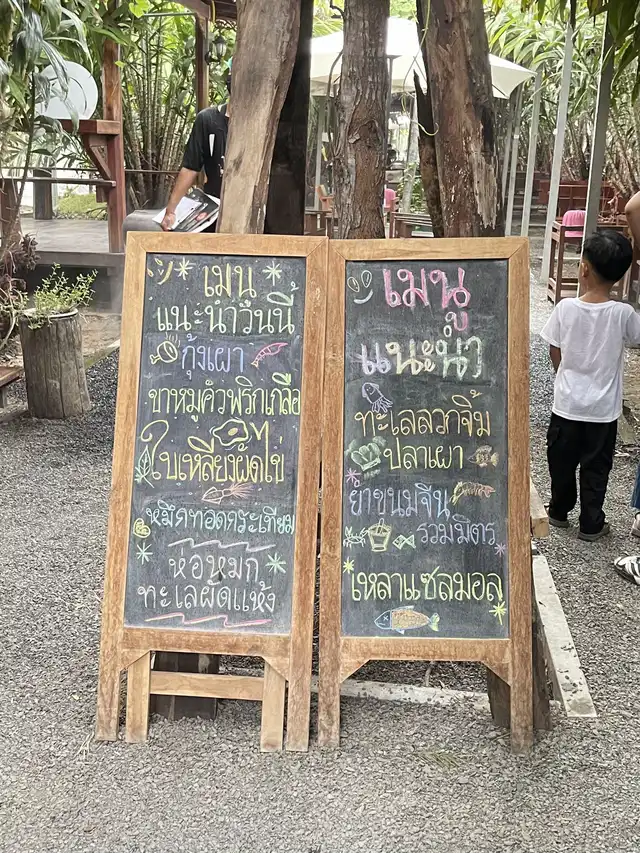 เมนู
แนะนำวันนี้
กุ้งเผา
ขาหมูคั่วพริกเกลือ
ใบเหลียงผัดไข่
หมึกทอดกระเทียม
ห่อหมก
ทะเลผัดแห้ง
เมนู
แนะนำ
ทะเลลวกจิ้ม
ปลาเผา
ยำขนมจีน
รวมมิตร
เหลาแซลมอล